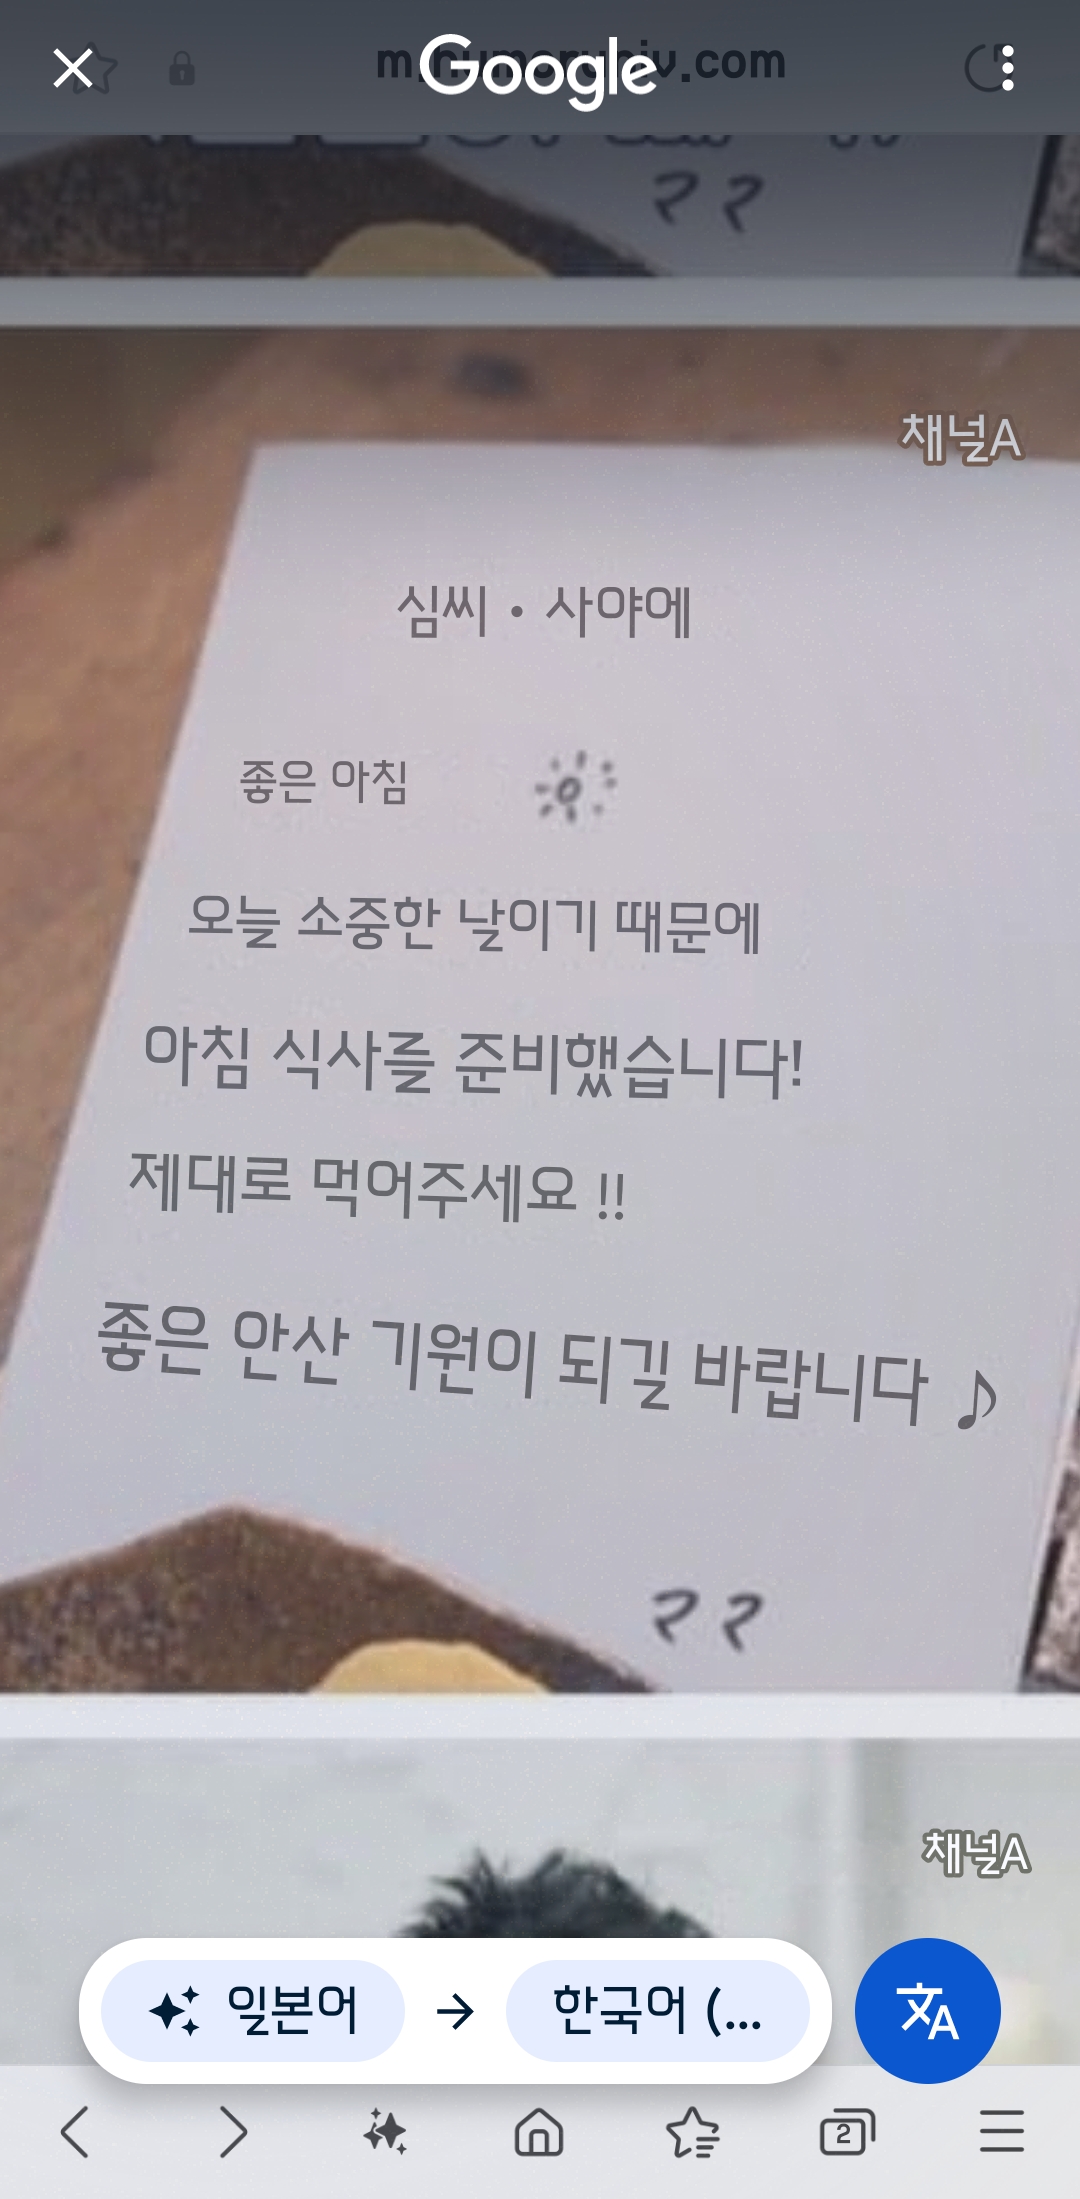 Google
채널A
심씨 • 사야에
좋은 아침
오늘 소중한 날이기 때문에
아침 식사를 준비했습니다!
제대로 먹어주세요 !!
좋은 안산 기원이 되길 바랍니다 ♪
채널A
일본어 → 한국어 (...
2